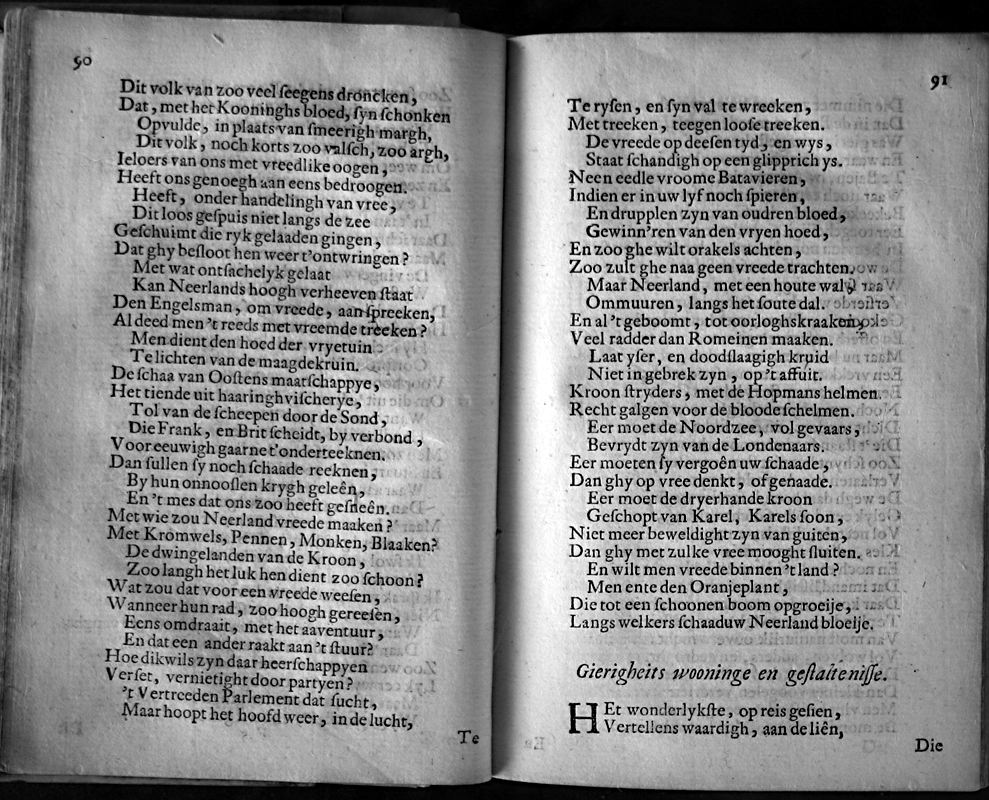 90
Dit volk van zoo veel ſeegens droncken,
Dat, met het Kooninghs bloed, ſyn ſchonken
Opvulde, in plaats van ſmeerigh margh,
Dit volk, noch korts zoo valſch, zoo argh,
Ieloers van ons met vreedlike oogen,
Heeft ons genoegh aan eens bedroogen.
Heeft, onder handelingh van vree,
Dit loos geſpuis niet langs de zee
Geſchuimt die ryk gelaaden gingen,
Dat ghy beſloot hen weer t'ontwringen?
Met wat ontſachelyk gelaat
Kan Neerlands hoogh verheeven ſtaat
Den Engelsman, om vreede, aanſpreeken,
Al deed men 't reeds met vreemde treeken?
Men dient den hoed der vryetuin
Te lichten van de maagdekruin.
De ſchaa van Ooſtens maatſchappye,
Het tiende uit haaringhviſcherye,
Tol van de ſcheepen door de Sond,
Die Frank, en Brit ſcheidt, by verbond,
Voor eeuwigh gaarne t'onderteeknen.
Dan ſullen ſy noch ſchaade reeknen,
By hun onnooſlen krygh geleên,
En 't mes dat ons zoo heeft geſneên.
Met wie zou Neerland vreede maaken?
Met Kromwels, Pennen, Monken, Blaaken?
De dwingelanden van de Kroon,
Zoo langh het luk hen dient zoo ſchoon?
Wat zou dat voor een vreede weeſen,
Wanneer hun rad, zoo hoogh gereeſen,
Eens omdraait, met het aaventuur,
En dat een ander raakt aan 't ſtuur?
Hoe dikwils zyn daar heerſchappyen
Verſet, vernietight door partyen?
't Vertreeden Parlement dat ſucht,
Maar hoopt het hoofd weer, in de lucht,
Te
91
Te ryſen, en ſyn val te wreeken,
Met treeken, teegen looſe treeken.
De vreede op deeſen tyd, en wys,
Staat ſchandigh op een glipprich ys.
Neen eedle vroome Batavieren,
Indien er in uw lyf noch ſpieren,
En drupplen zyn van oudren bloed,
Gewinn'ren van den vryen hoed,
En zoo ghe wilt orakels achten,
Zoo zult ghe naa geen vreede trachten.
Maar Neerland, met een houte wal
Ommuuren, langs het ſoute dal.
En al 't geboomt, tot oorloghskraaken
Veel radder dan Romeinen maaken.
Laat yſer, en doodſlaagigh kruid
Niet in gebrek zyn, op 't affuit.
Kroon ſtryders, met de Hopmans helmen.
Recht galgen voor de bloode ſchelmen.
Eer moet de Noordzee, vol gevaars,
Bevrydt zyn van de Londenaars.
Eer moeten ſy vergoên uw ſchaade,
Dan ghy op vree denkt, of genaade.
Eer moet de dryerhande kroon
Geſchopt van Karel, Karels ſoon,
Niet meer beweldight zyn van guiten,
Dan ghy met zulke vree mooght ſluiten.
En wilt men vreede binnen 't land?
Men ente den Oranjeplant,
Die tot een ſchoonen boom opgroeije,
Langs welkers ſchaaduw Neerland bloeije.
Gierigheits wooninge en geſtalteniſſe.
HEt wonderlykſte, op reis geſien,
Vertellens waardigh, aan de liên,
Die